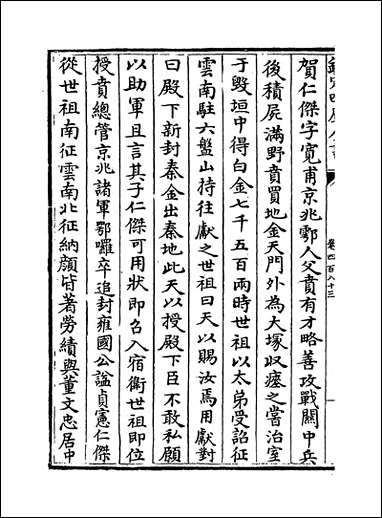 賀仁傑字寛甫京兆鄠人父賁有才略善攻戰關中兵
後積屍滿野賁買地金天門外為大塚収瘞之嘗治室
于毁垣中得白金七千五百兩時世祖以太弟受詔征
雲南駐六盤山持往獻之世祖曰天以賜汝焉用獻對
曰殿下新封秦金出秦地此天以授殿下臣不敢私願
以助軍且言其子仁傑可用狀即召入宿衛世祖即位
授賁總管京兆諸軍鄂囉卒追封雍國公諡貞憲仁傑
從世祖南征雲南北征納顔皆著勞績與董文忠居中
卷四百八十三